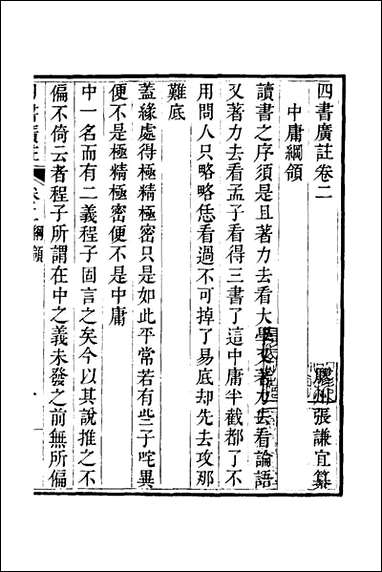 四書廣註卷二
膠州張謙宜纂
中庸綱領
讀書之序須是且著力去看大學又著力去看論語
又著力去看孟子看得三書了這中庸半截都了不
用問人只略略恁看過不可掉了易底却先去攻那
難底
蓋緣處得極精極密只是如此平常若有些子咤異
便不是極精極密便不是中庸
中一名而有二義程子固言之矣今以其說推之不
偏不倚云者程子所謂在中之義未發之前無所偏